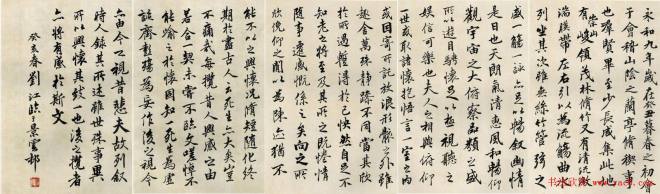 永和九年歲在癸丑暮春之初會
于會稽山陰之蘭亭脩稧事
也群賢畢至少長咸集此地
有崇山峻領茂林脩竹又有清流激
湍暎帶左右引以為流觴曲水
列坐其次雖無絲竹管弦之
盛一觴一詠亦足以暢叙幽情
是日也天朗氣清惠風和暢仰
觀宇宙之大俯察品類之盛
所以遊目騁懷足以極視聽之
娛信可樂也夫人之相與俯仰
一世或取諸懷抱悟言一室之內
或因寄所託放浪形骸之外雖
趣舍萬殊靜躁不同當其欣
於所遇暫得於己怏然自足不
知老之將至及其所之既惓情
隨事遷感慨係之矣向之所
欣俛仰之間以為陳迹猶不
能不以之興懷況脩短隨化終
期於盡古人云死生亦大矣豈
不痛哉每攬昔人興感之由
若合一契未嘗不臨文嗟悼不
能喻之於懷固知一死生為虛
誕齊彭殤為妄作後之視今
亦由今之視昔悲夫故列叙
時人錄其所述雖世殊事異
所以興懷其致一也後之攬者
亦將有感於斯文
癸亥春劉江臨于景雲邨